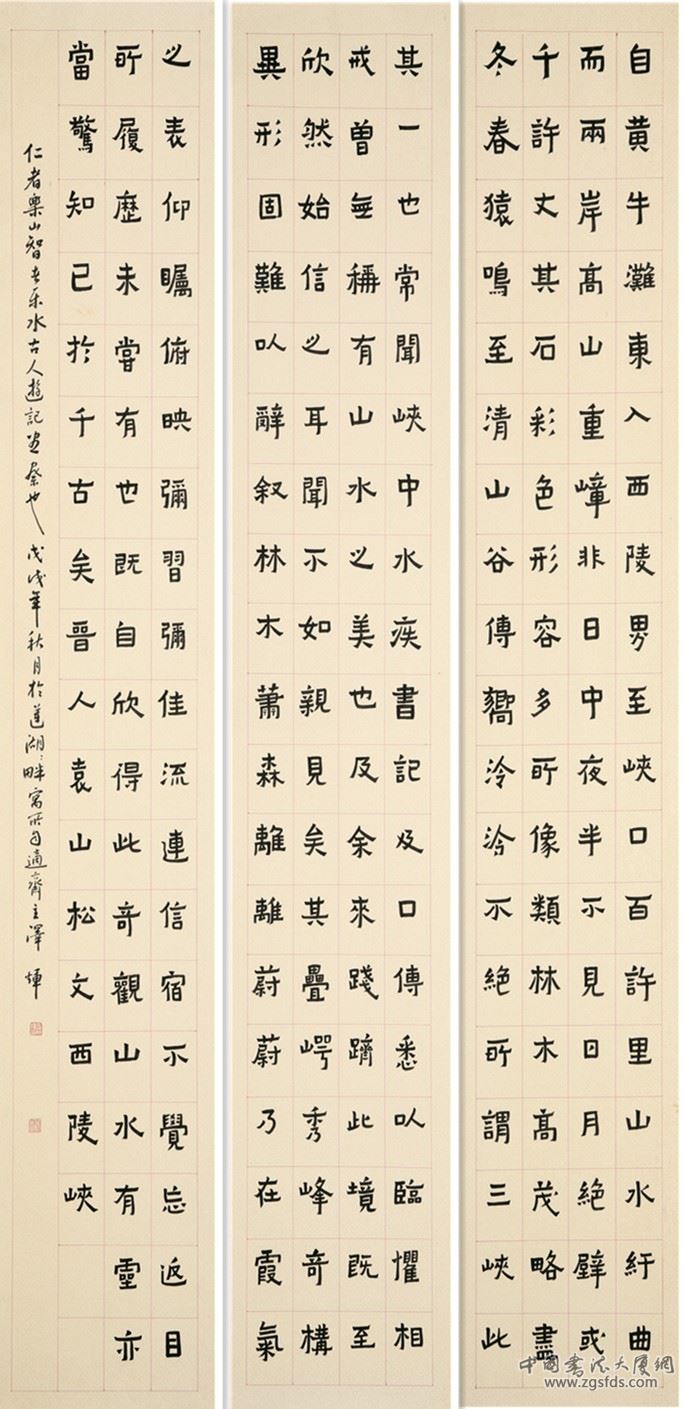 自黄牛灘東入西陵界至峽口百許里山水紆曲
而兩岸髙山重嶂非日中夜半不見日月絶壁或
千許丈其石彩色形容多所像類林木髙茂略盡
冬春猿鳴至清山谷傳響泠泠不絶所謂三峽此
其一也常聞峽中水疾書記及口傳悉以臨懼相
戒曽無稱有山水之美也及余來踐躋此境既至
欣然始信之耳聞不如親見矣其疊崿秀峰奇構
異形固難以辭叙林木蕭森離離蔚蔚乃在霞氣
之表仰矚俯映彌習彌佳流連信宿不覺忘返目
所履歷未嘗有也既自欣得此奇觀山水有靈亦
當驚知已於千古矣晉人袁山松文西陵峽
仁者樂山智者乐水古人遊記 也戊戌年秋月於蓮湖畔寓所自適齋主澤 
中國書法大廈網
www.zgsfds.com